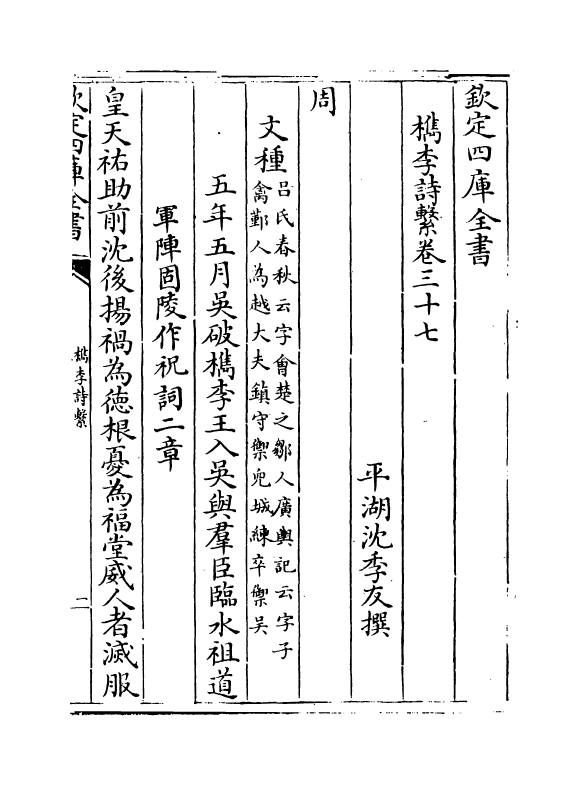 欽定四庫全書
檇李詩繫卷三十七
平湖沈季友撰
周
文種
呂氏春秋云字會楚之鄒人廣輿記云字子
禽鄞人為越大夫鎮守禦兒城練卒禦吳
五年五月吳破檇李王入吳與羣臣臨水祖道
軍陣固陵作祝詞二章
皇天祐助前沈後揚禍為徳根憂為福堂威人者滅服
欽定四庫全書
檇李詩繫
二